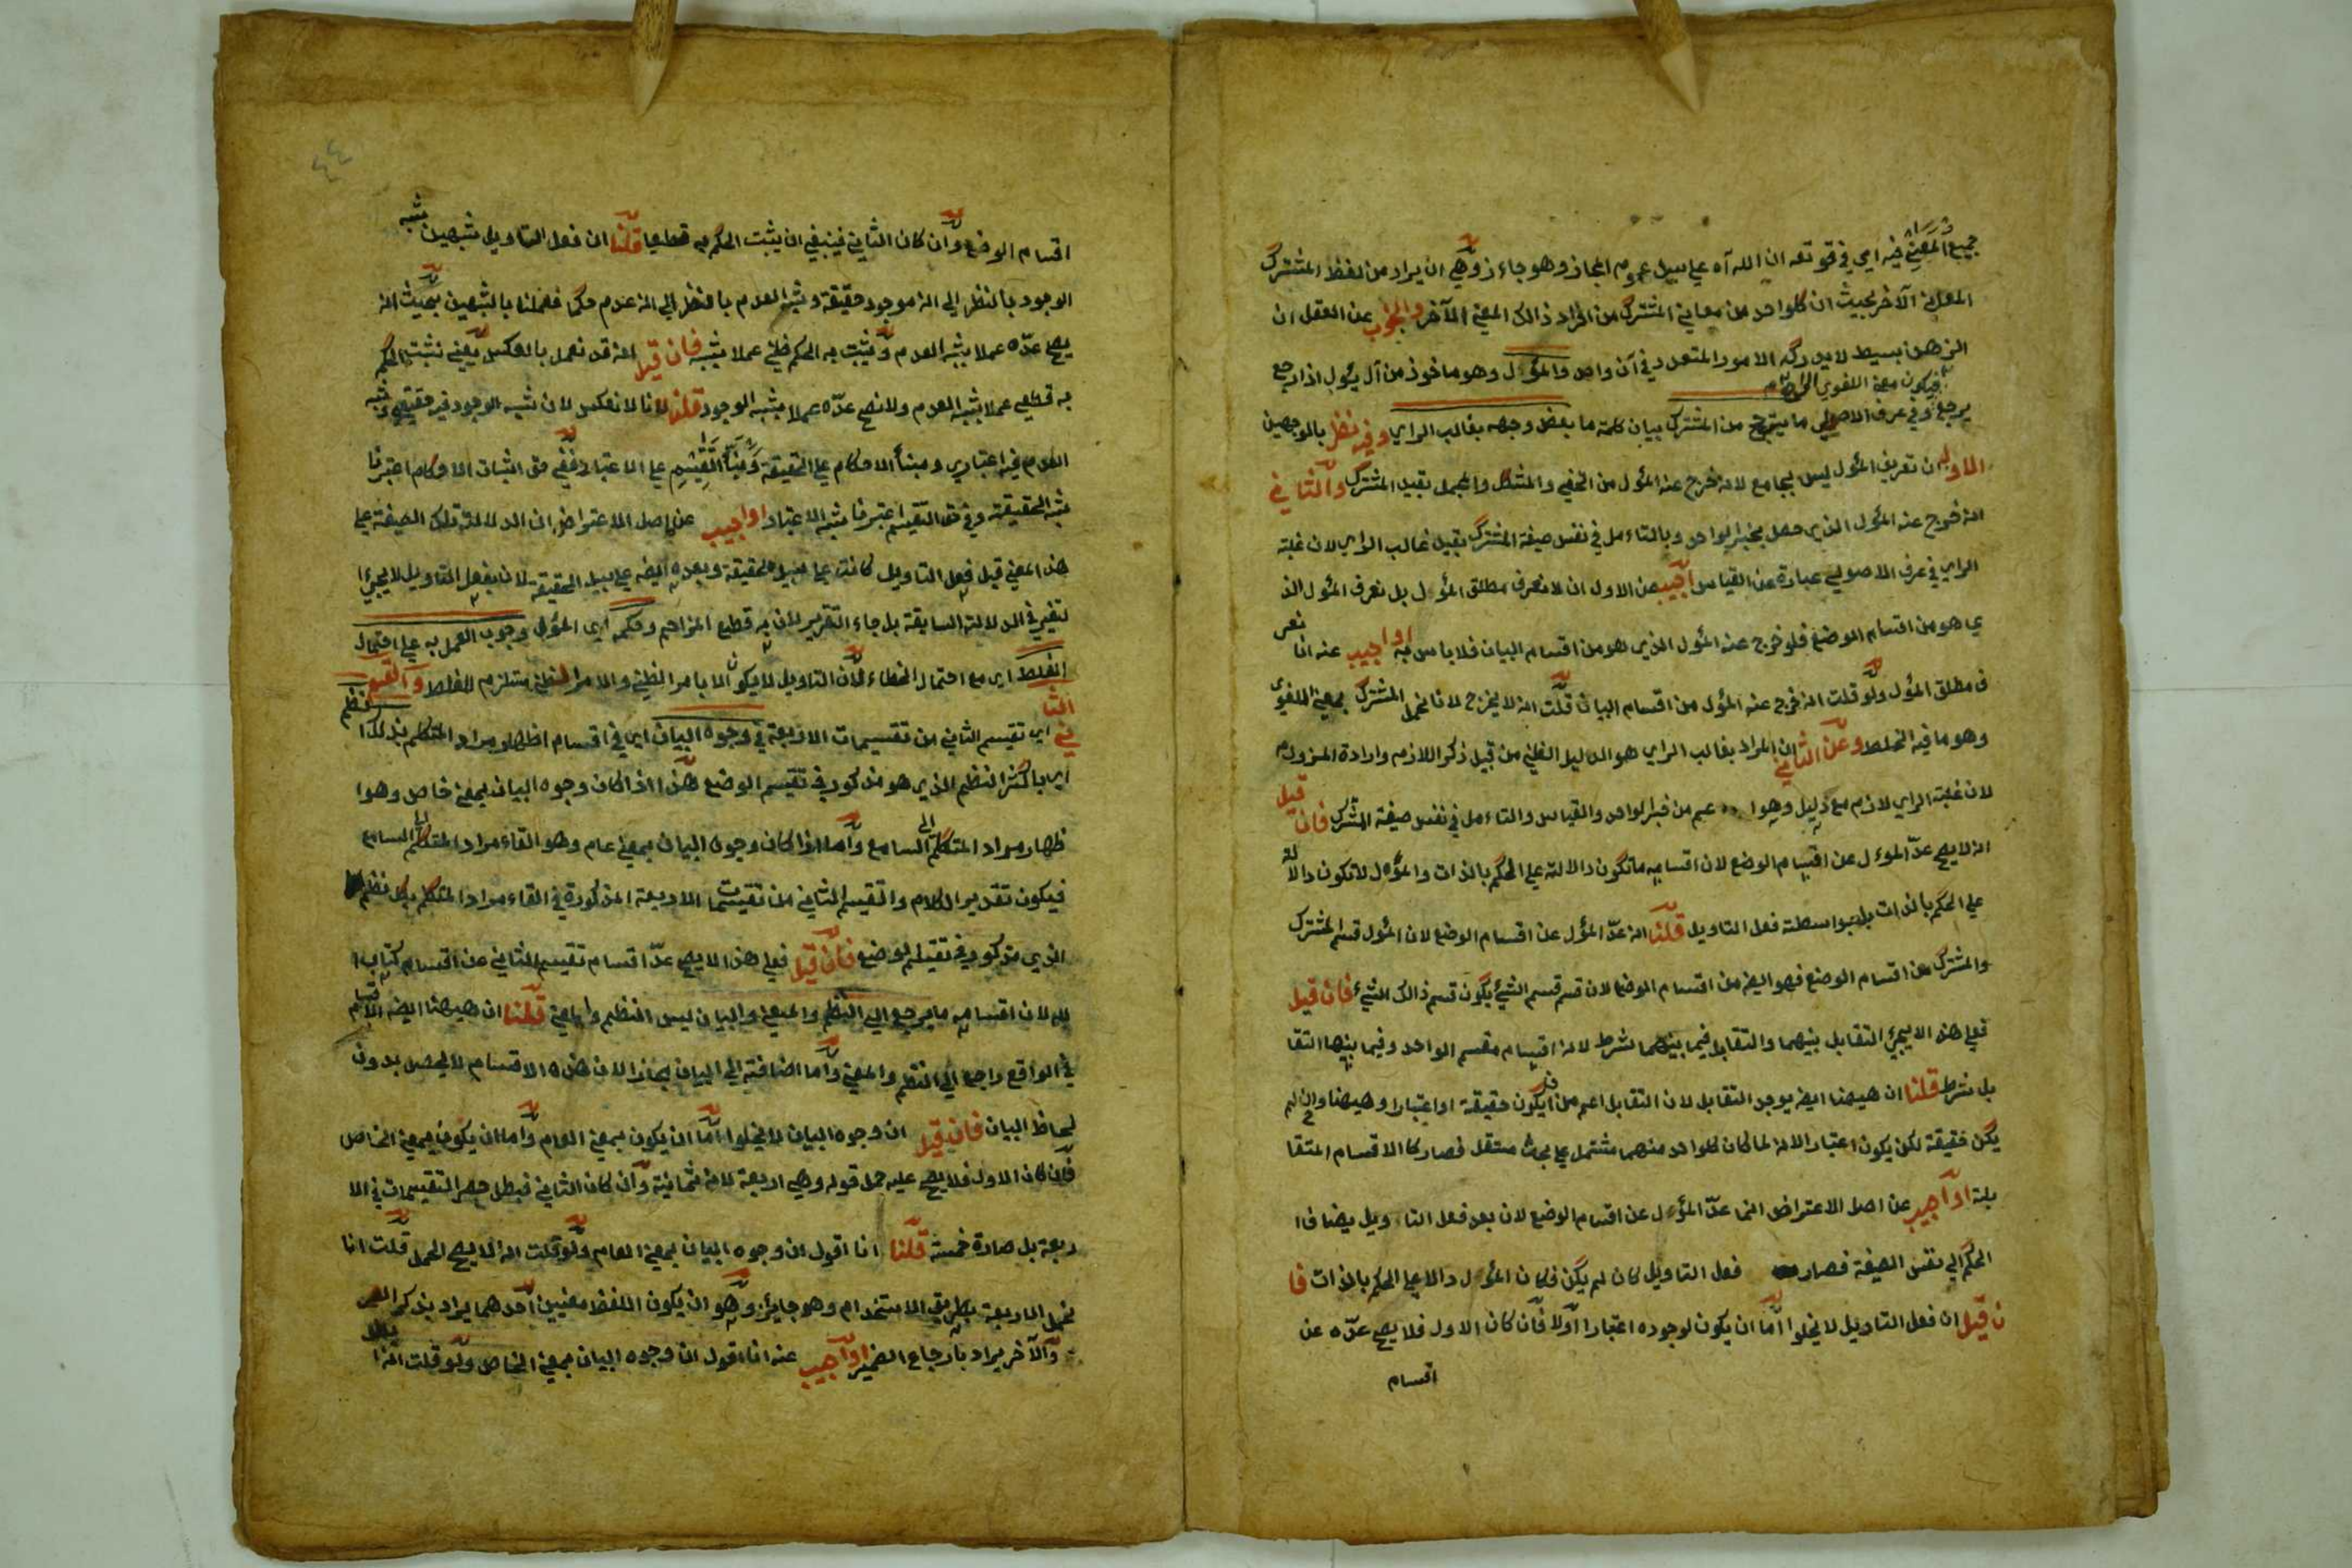 جميع المعني فيه اي في قوله تعه ان الله آه علي سبيل عموم المجاز وهو جاءز وهي ان يراد من لفظ المشترك
المعني الآخر بحيث ان كلواحد من معاني المشترك من افراد ذالك المعني الآخر والجواب عن العقل ان
الذهن بسيط لا يدرك الامور المتعدد في آن واحد والمؤل وهو ماخوذ من آل يؤل اذا رجع
فيكون معه اللغوي
يرجع وفي عرف الاصولي ما يترجح من المشترك بيان كلمة ما بعض وجهه بغالب الراي وفيه نظر بالوجهين
الاول ان تعريف المؤل ليس بجامع لانه خرج عنه المؤل من الخفي والمشكل والمجمل بقيد المشترك والثاني
انه خرج عنه المؤل الذي حصل بخبر الواحد وبالتاءمل في نفس صيغة المشترك بقيد غالب الراي لان غلبة
الراي في عرف الاصولي عبارة عن القياس اجيب عن الاول ان لا نعرف مطلق المؤل بل نعرف المؤل الذ
ي هو من اقسام الوضع فلو خرج عنه المؤل الذي هو من اقسام البيان فلا باس به او اجيب عنه انا نعر
ف مطلق المؤل ولو قلت انه خرج عنه المؤل من اقسام البيان قلت انه لا يخرج لانا نحمل المشترك بمعني اللغوي
وهو ما فيه الخلط وعن الثاني ان المراد بغالب الراي هو الدليل الظني من قبيل ذكر اللازم وارادة الملزوم
لان غلبة الراي لازم مع دليل وهو اعم من خبر الواحد والقياس والتاءمل في نفس صيغة المشترك فان قيل
انه لا يصح عدّ المؤل عن اقسام الوضع لان اقسامه ما تكون دالالة علي الحكم بالذات والمؤل لا تكون دالالة
علي الحكم بالذات بل بواسطة فعل التاويل قلنا انه عدّ المؤل عن اقسام الوضع لان المؤل قسم المشترك
والمشترك من اقسام الوضع فهو ايضه من اقسام الوضع لان قسم قسم الشيء يكون قسم ذالك الشيء فان قيل
فعلي هذا لا يجرئ التقابل بينهما والتقابل فيما بينهما شرط لانه اقسام مقسم الواحد وفيما بينها التقا
بل شرط قلنا ان هيهنا ايضه يوجد التقابل لان التقابل اعم من ان يكون حقيقة او اعتبارا وهيهنا وان لم
يكن حقيقة لكن يكون اعتبارا لانه لما كان كلواحد منهما مشتمل علي بحث مستقل فصار كالاقسام المتقا
بلة او اجيب عن اصل الاعتراض انما عدّ المؤل عن اقسام الوضع لان بعد فعل التا ويل يضاف ا
الحكم الي نفس الصيغة فصار فعل التاويل كان لم يكن فكان المؤل دالا علي الحكم بالذات فا
ن قيل ان فعل التاويل لا يخلوا اما ان يكون لوجوده اعتبارا اولا فان كان الاول فلا يصح عدّه عن
اقسام
٤٤
اقسام الوضع وان كان الثاني فينبغي ان يثبت الحكم به قطعيا قلنا ان فعل التاويل شبهين شبه
الوجود بالنظر الي انه موجود حقيقة وشبه العدم بالنظر الي انه عدم حكما فعملنا بالشبهين بحيث انه
يصح عدّه عملا بشبه العدم ويثبت به الحكم ظني عملا بشبه فان قيل انه قد نعمل بالعكس يعني نثبت الحكم
به قطعي عملا بشبه العدم ولا نصح عدّه عملا بشبه الوجود قلنا لانا لا نعكس لان شبه الوجود فيه حقيقي وشبه
العدم فيه اعتباري ومبنأ الاحكام علي الحقيقة ومبنأ التقسيم علي الاعتبار ففي حق اثبات الاحكام اعتبرنا
شبه الحقيقة وفي حق التقسيم اعتبرنا شبه الاعتبار او اجيب عن اصل الاعتراض ان الدلالة تلك الصيغة علي
هذا المعني قبل فعل التاويل كانت علي سبيل الحقيقة وبعده ايضه علي سبيل الحقيقة لان بفعل التاويل لا يجرئ
تغير في الدلالة السابقة بل جاء التقرير لان به قطع المزاحم وحكمه اي المؤل وجوب العمل به علي احتمال
الغلط اي مع احتمال الخطاء لان التاويل لا يكون الا بامر الظني والامر الظني مستلزم للغلط والقسم الثا
ني اي تقسيم الثاني من تقسيمات الاربعة في وجوه البيان اي في اقسام اظهار مراد المتكلم بذلك النظم
اي باكثر النظم الذي هو مذكور في تقسيم الوضع هذا اذا كان وجوه البيان بمعني خاص وهو ا
ظهار مراد المتكلم الي السامع واما اذا كان وجوه البيان بمعني عام وهو القاء مراد المتكلم الي السامع
فيكون تقدير الكلام والتقسيم الثاني من تقسيمات الاربعة المذكورة في القاء مراد المتكلم بكل نظم
الذي مذكور في تقسيم الوضع فان قيل فعلي هذا لا يصح عدّ اقسام تقسيم الثاني عن اقسام كتاب ا
لله لان اقسامه ما يرجع الي النظم والمعني والبيان ليس النظم والمعني قلنا ان هيهنا ايضه الاقسام
في الواقع راجع الي النظم والمعني واما اضافته الي البيان مجازا لان هذه الاقسام لا يحصل بدون
لحاظ البيان فان قيل ان وجوه البيان لا يخلوا اما ان يكون بمعني العام واما ان يكون بمعني الخاص
فان كان الاول فلا يصح عليه حمل قوله وهي اربعة لانه ثمانية وان كان الثاني فبطل حصر التقسيمات في الا
ربعة بل صارة خمسة قلنا انا اقول ان وجوه البيان بمعني العام ولو قلت انه لا يصح الحمل قلت انا
نحمل الاربعة بطريق الاستخدام وهو جايز وهو ان يكون اللفظ معنيين احدهما يراد بذكر
والآخر يراد بارجاع الضمير او اجيب عنه انا اقول ان وجوه البيان بمعني الخاص ولو قلت انه